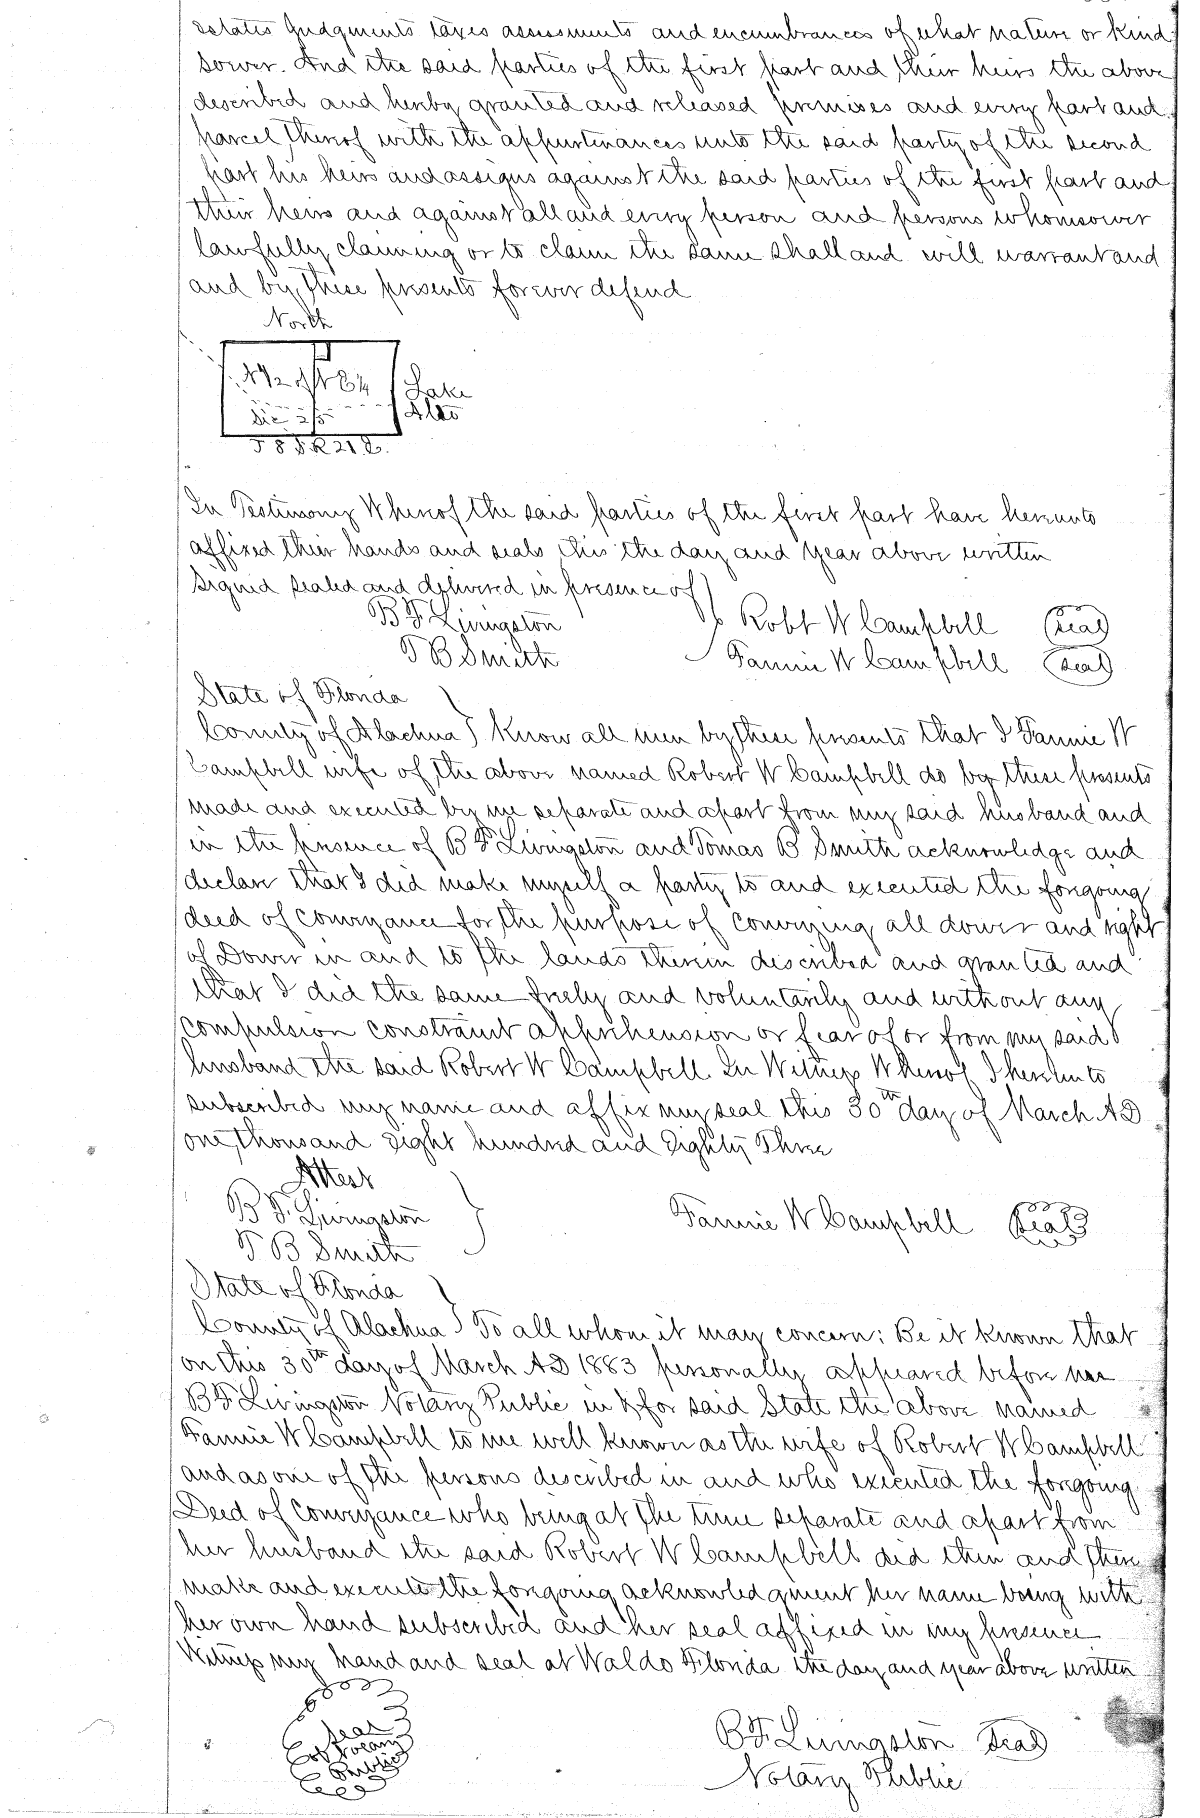 Estates Judgments taxes assessments and encumbrances of what nature or kind
soever. And the said parties of the first part and their heirs the above
described and hereby granted and released premises and every part and
parcel thereof with the appurtenances unto the said party of the second
part his heirs and assigns against the said parties of the first part and
their heirs and against all and every person and persons whomsoever
lawfully claiming or to claim the same shall and will warrant and
and by these presents forever defend
North
Lake
Alto
Sec 25
T 8 S R 21 E.
In Testimony Whereof the said parties of the first part have hereunto
affixed their hands and seals this the day and year above written
Signed sealed and delivered in presence of
B F Livingston Robt W Campbell Seal
T B Smith Fannie W Campbell Seal
State of Florida
County of Alachua } Know all men by these presents that I Fannie W
Campbell wife of the above named Robert W Campbell do by these presents
made and executed by me separate and apart from my said husband and
in the presence of B F Livingston and Tomas B Smith acknowledge and
declare that I did make myself a party to and executed the forgoing
deed of conveyance for the purpose of conveying all dower and right
of Dower in and to the lands therein described and granted and
that I did the same freely and voluntarily and without any
compulsion constraint apprehension or fear of or from my said
husband the said Robert W Campbell In Witness Whereof I hereunto
subscribed my name and affix my seal this 30th day of March AD
one thousand Eight hundred and Eighty Three
Attest
B F. Livingston Fannie W Campbell Seal
T B Smith
State of Florida
County of Alachua } To all whom it may concern: Be it known that
on this 30th day of March AD 1883 personally appeared before me
B F Livingston Notary Public in & for said State the above named
Fannie W Campbell to me well known as the wife of Robert W Campbell
and as one of the persons described in and who executed the forgoing
Deed of Conveyance who being at the time separate and apart from
her husband the said Robert W Campbell did then and there
make and execute the forgoing acknowledgment her name being with
her own hand subscribed and her seal affixed in my presence
Witness my hand and seal at Waldo Florida the day and year above written
Seal
of Notary
Public
B F. Livingston Seal
Notary Public